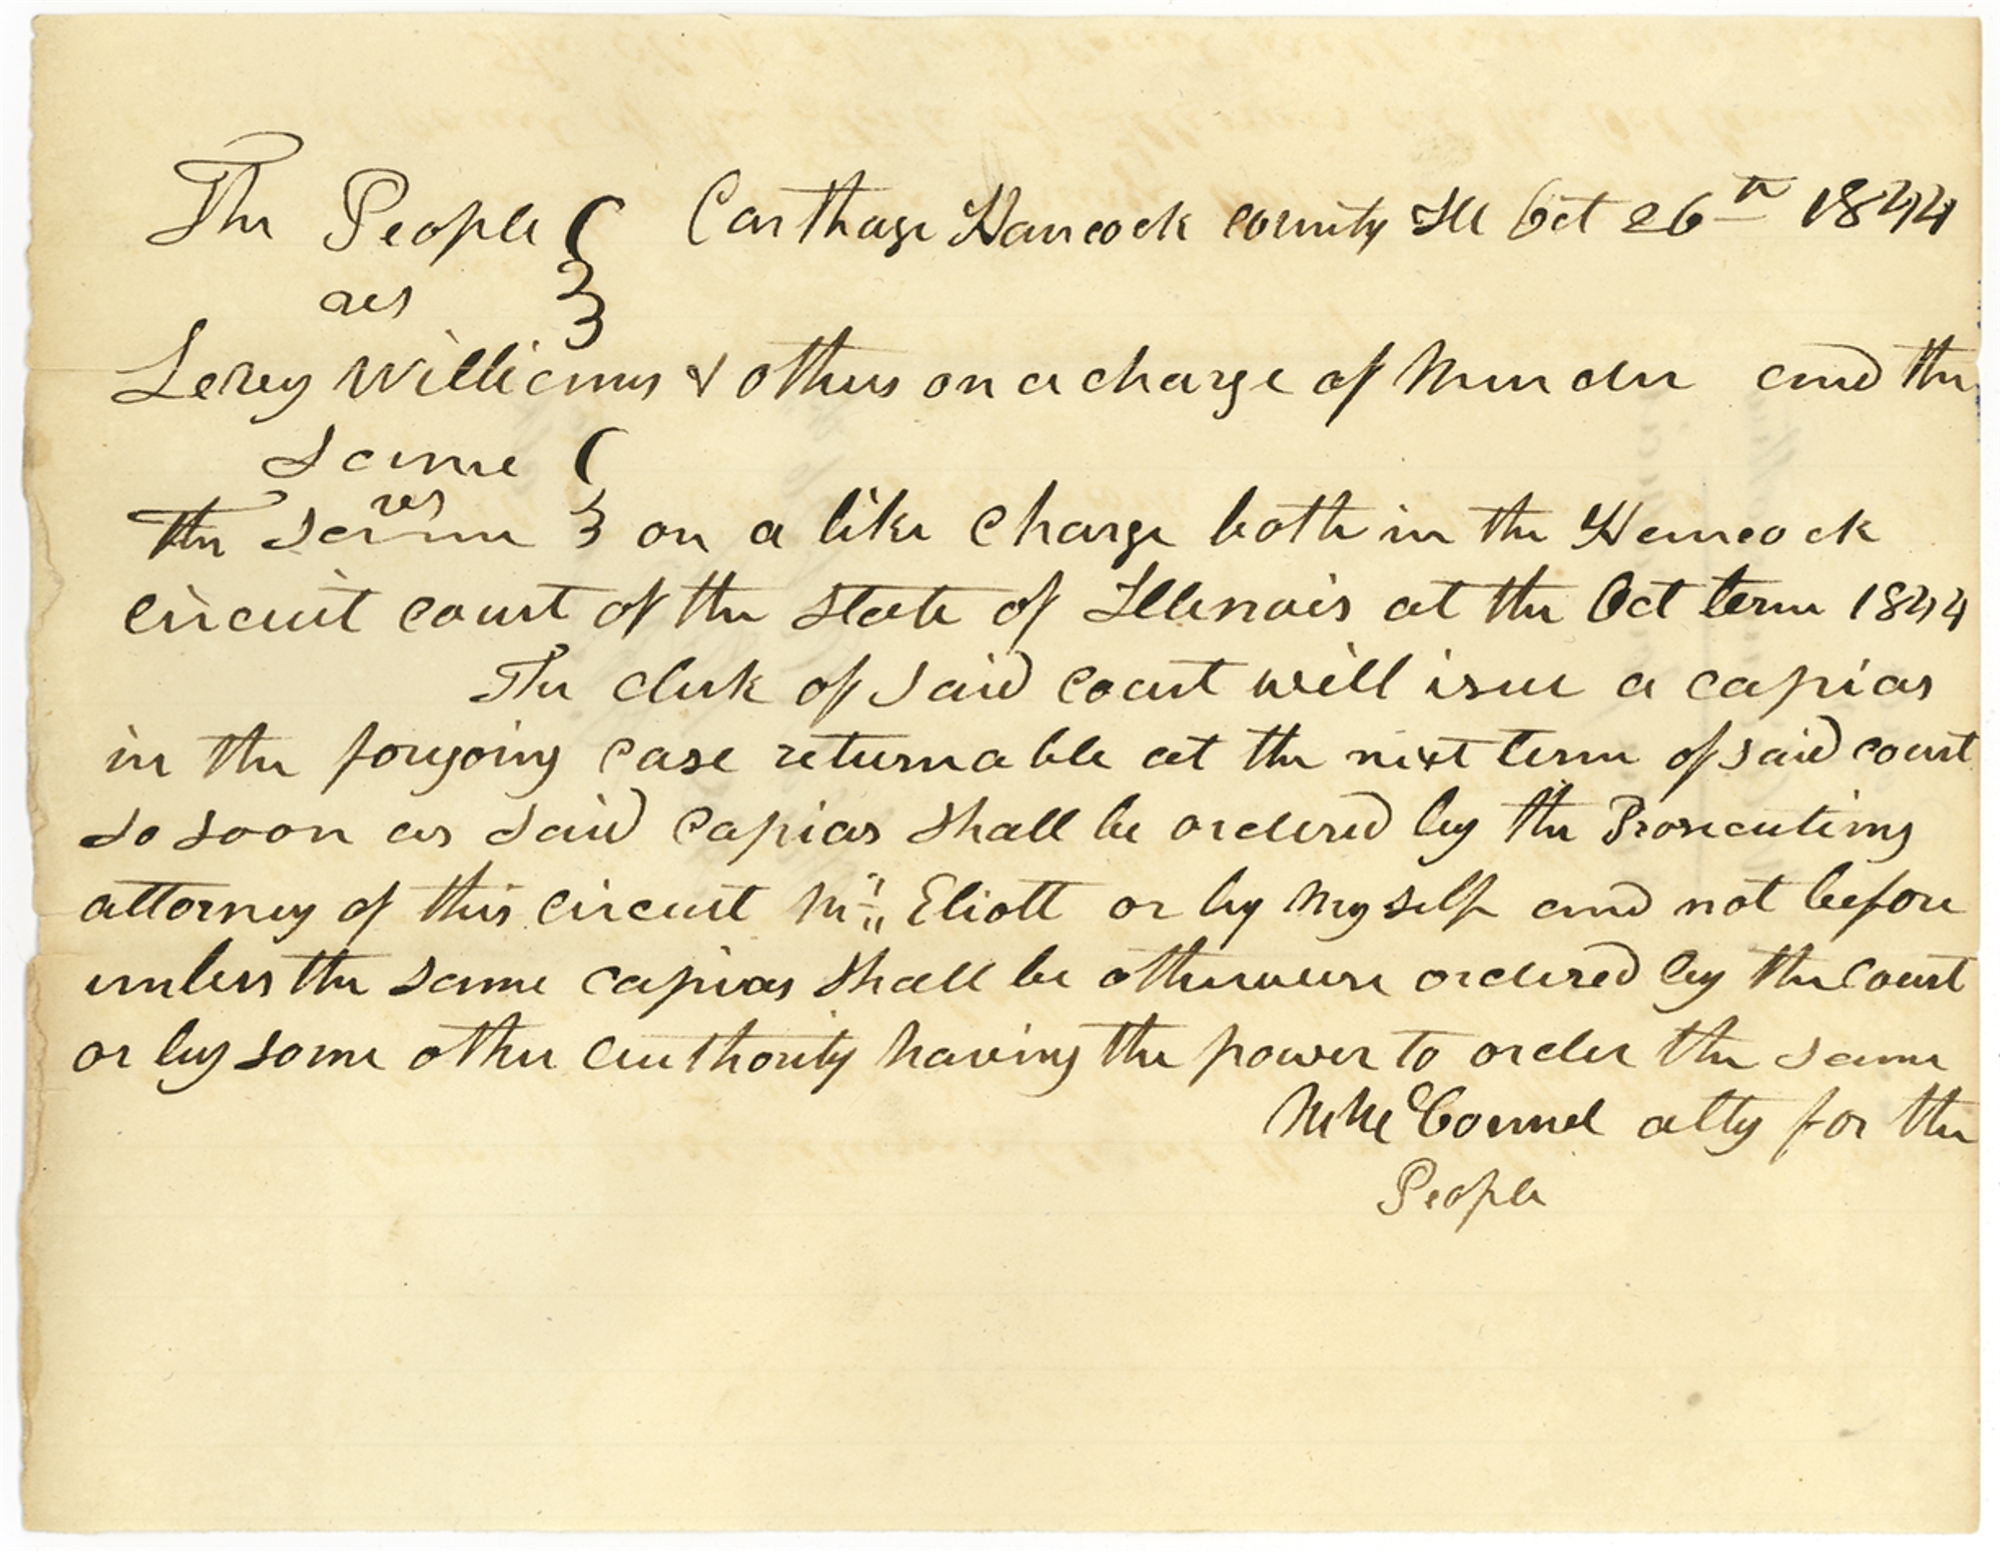 The People } Carthage Hancock county Ill Oct 26th 1844
vs
Levy Williams & others on a charge of Murder and the
same }
vs
the same } on a like charge both in the Hancock
circuit court of the state of Illinois at the Oct term 1844
The clerk of said court will isue a capias
in the forgoing case returnable at the next term of said court
so soon as said capias shall be ordered by the Prosecuting
attorney of this circuit Mr Eliott or by my self and not before
unless the same capias shall be otherwise ordered by the court
or by some other authority having the power to order the same
M McConnel atty for the
People